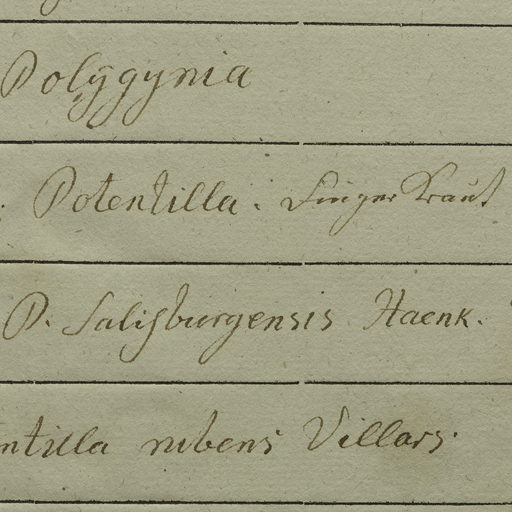 Polÿgynia
Potentilla. Fingerkraut
P. Salisburgensis Haenk.
ntilla rubens Villars.